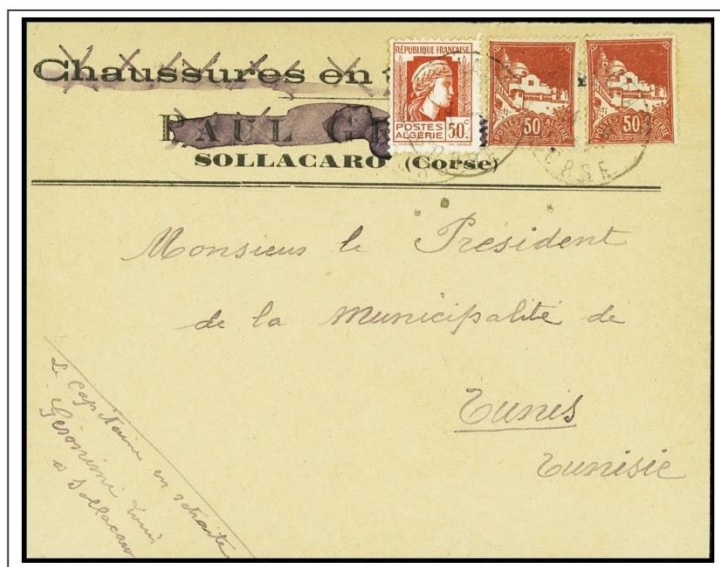 Chaussures en
PAUL G
SOLLACARO (Corse)
RÉPUBLIQUE FRANÇAISE
POSTES
ALGÉRIE
50c
POSTES ALGÉRIE
50c
POSTES ALGÉRIE
50c
CORSE
Monsieur le Président
de la Municipalité de
Tunis
Tunisie
Le capitaine en retraite
Géronimi Louis
à Sollacaro